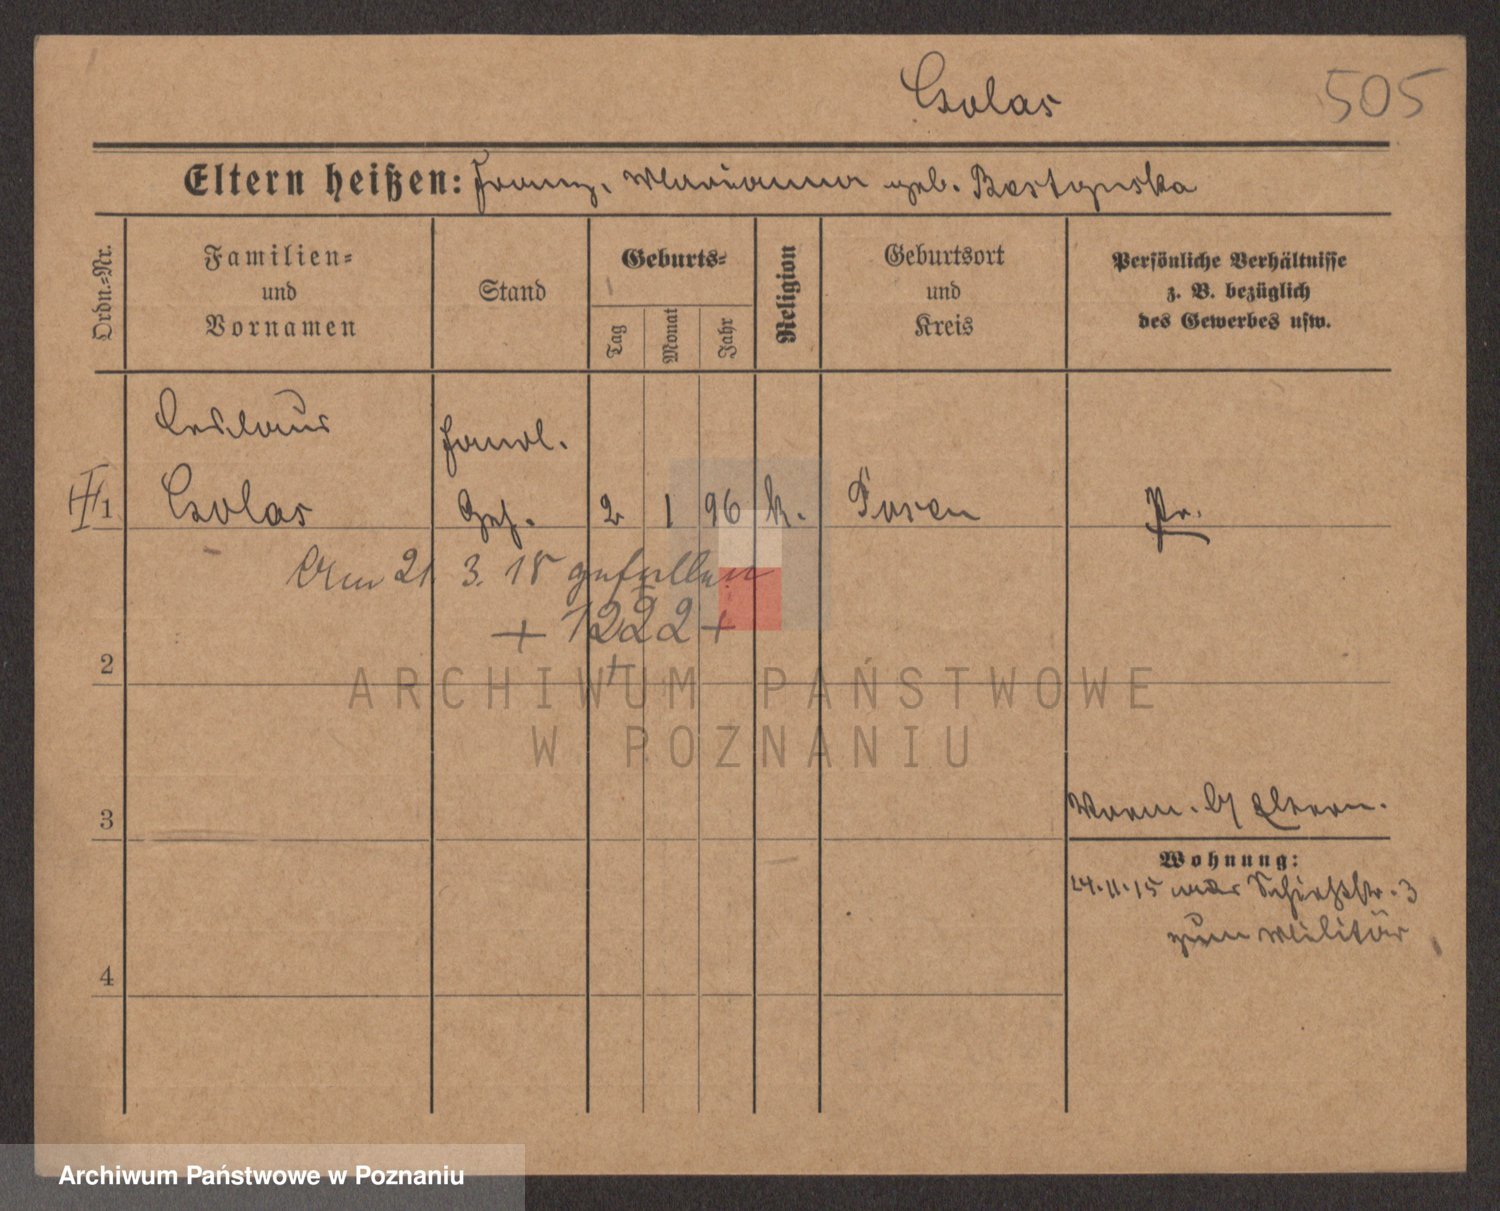 Golas
505
Eltern heißen: Franz, Marianna geb.
Ordn.=Nr.
Familien=
und
Vornamen
Stand
Geburts=
Tag
Monat
Jahr
Religion
Geburtsort
und
Kreis
Persönliche Verhältnisse
z. B. bezüglich
des Gewerbes usw.
Ceslaus
Handl.
1 Golas Geh. 2 1 96 k. Posen Pr.
Am 21. 3. 18 gefallen
+ 1222 +
+
2
ARCHIWUM PAŃSTWOWE
W POZNANIU
3
Vorm. b/ Eltern.
Wohnung:
24.11.15 Schießstr. 3
zum Militär
4
Archiwum Państwowe w Poznaniu